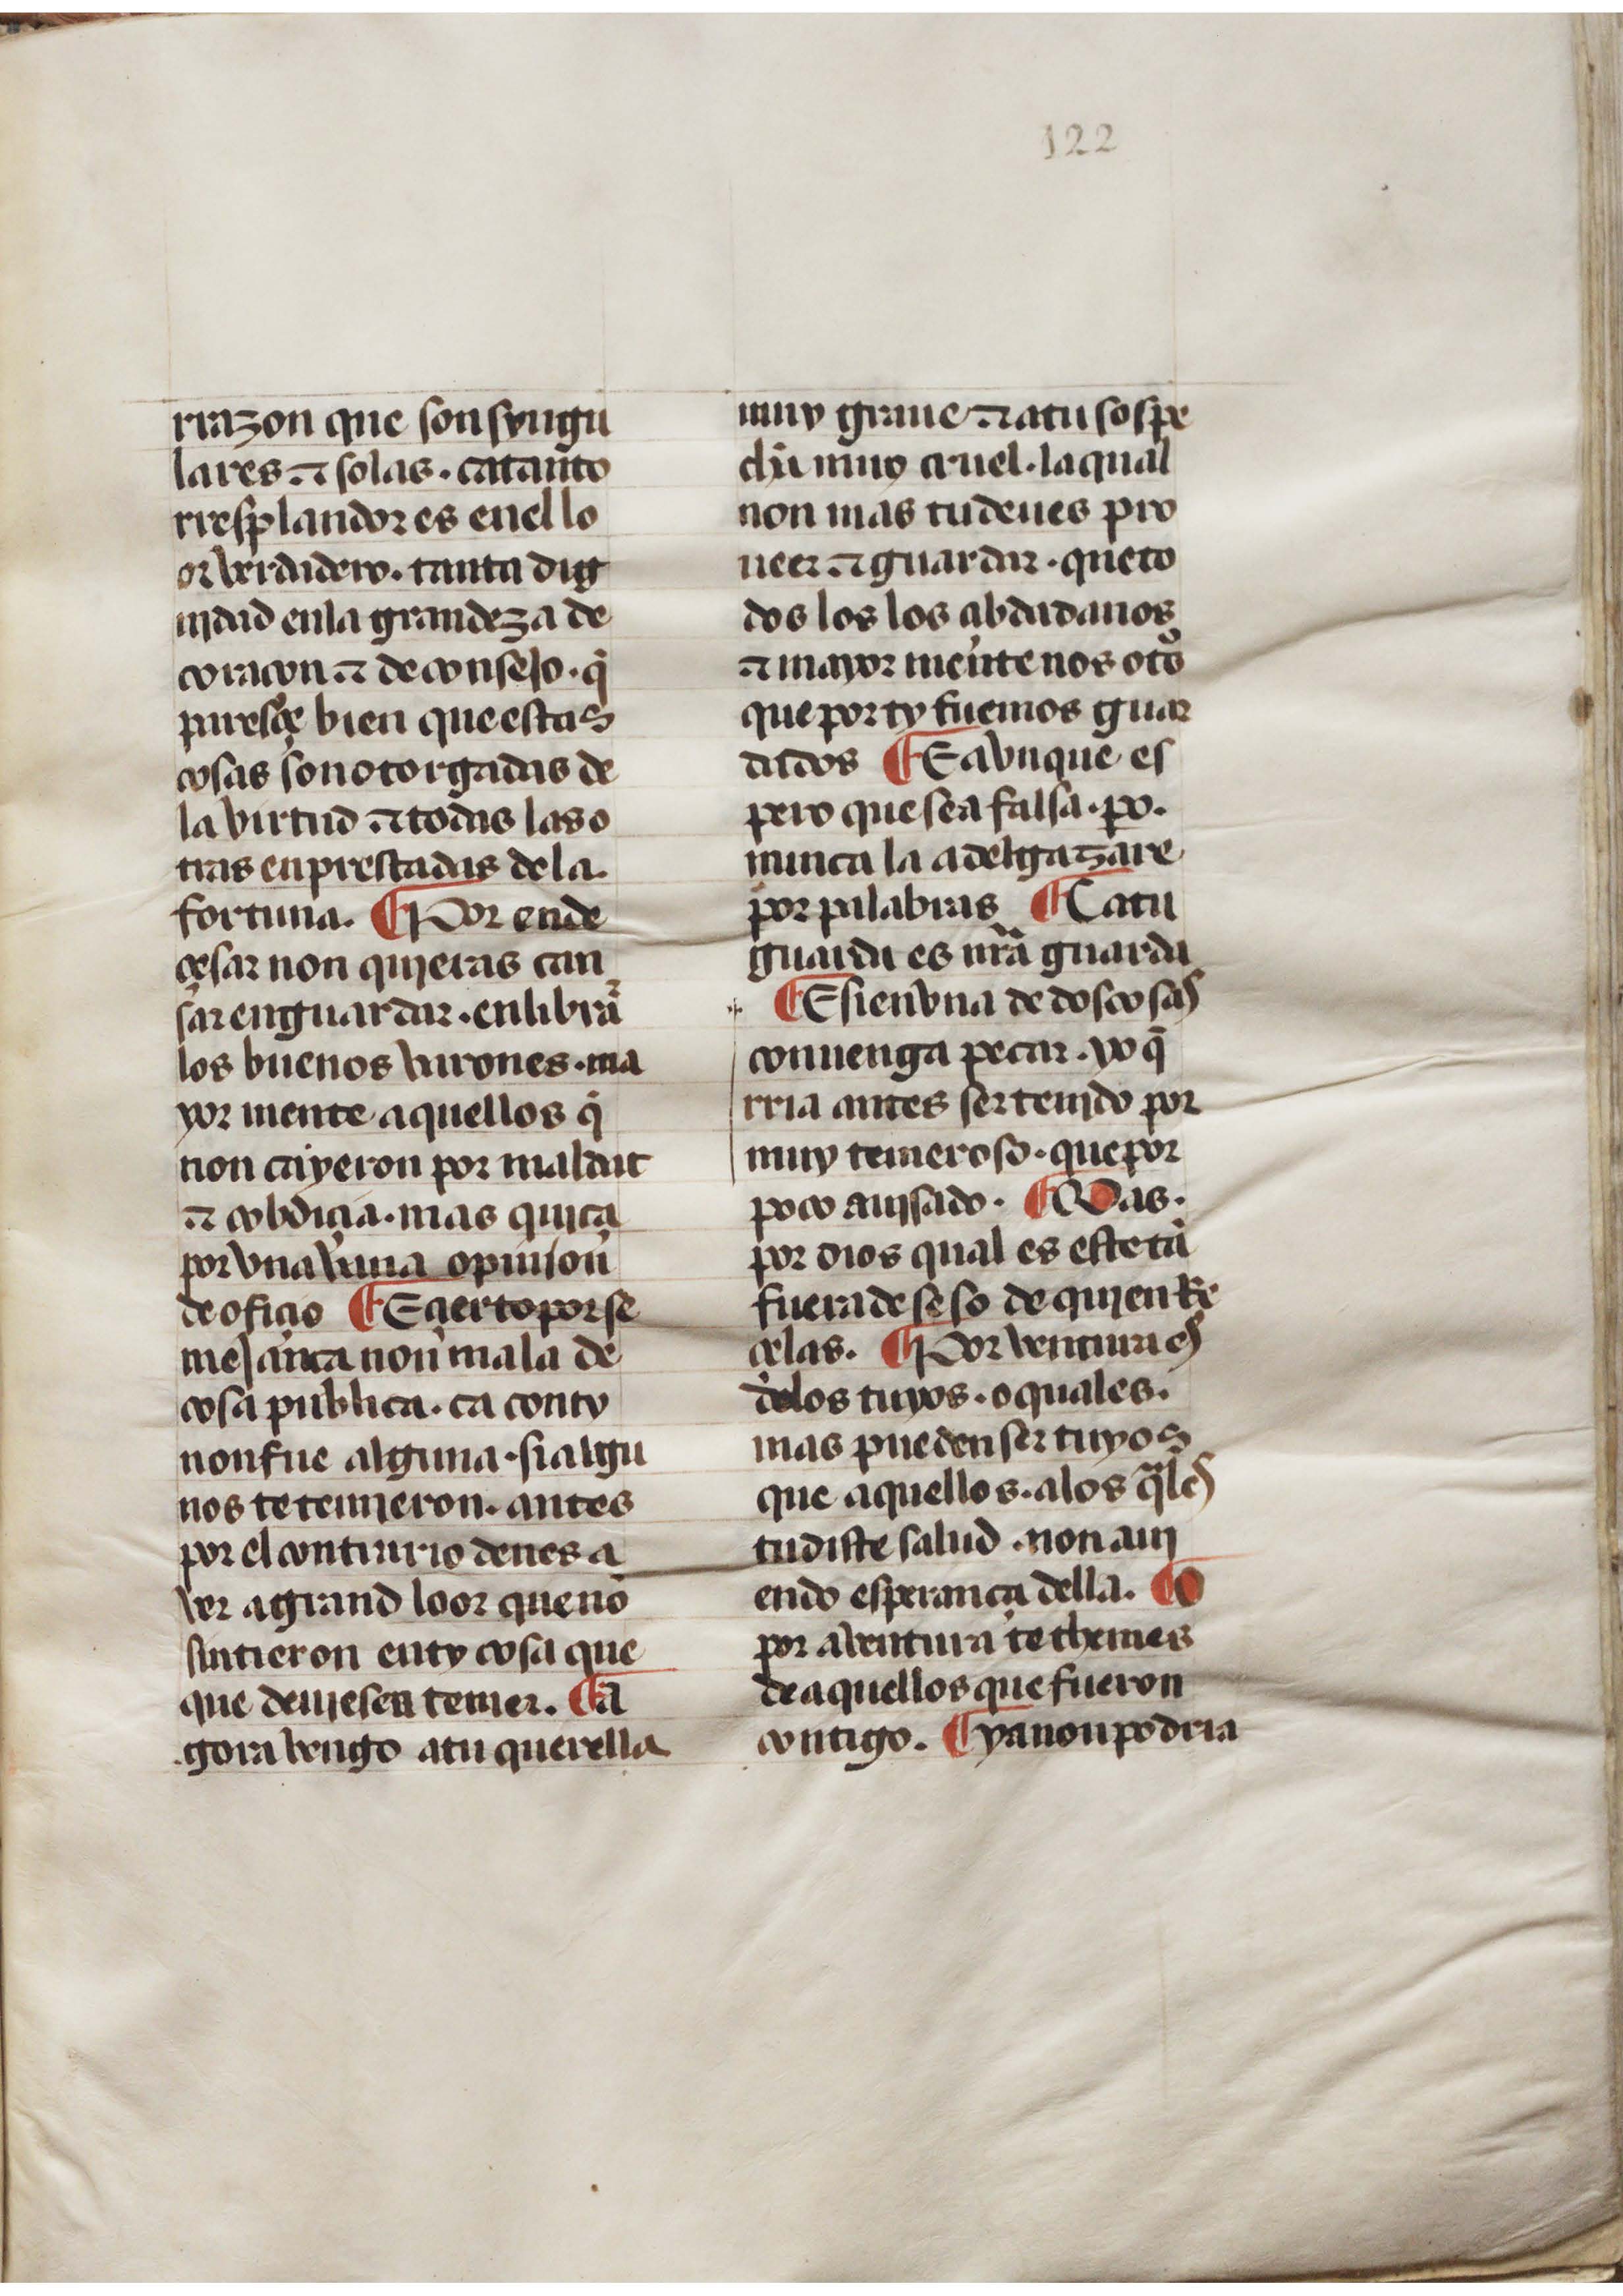 122
rrazon que son syngu
lares ⁊ solas · ca tanto
rresplandor es en el lo
or verdadero · tanta dig
nidad en la grandeza de
coraçon ⁊ de conseio · q̄
paresçe bien que estas
cosas son otorgadas de
la virtud ⁊ todas las o
tras enprestadas de la
fortuna. ¶ Por ende
çesar non quieras can
sar en guardar · en librar̄
los buenos varones · ma
yor mente aquellos q̄
non cayeron por maldat
⁊ cobdiçia · mas quiça
por vna vana opinion
de ofiçio ¶ E çierto por se
meiança non mala de
cosa publica · ca con ty
non fue alguna · si algu
nos te temieron · antes
por el contrario deues a
ver a grand loor que nō
sintieron en ty cosa que
que deuiesen temer. ¶ a
gora vengo a tu querella
muy graue ⁊ a tu sospe
cha muy cruel · la qual
non mas tu deues pro
ueer ⁊ guardar · que to
dos los los abdadanos
⁊ mayor mente nos otͦs
que por ty fuemos guar
dados ¶ E avnque es
pero que sea falsa · po·
nunca la adelgazare
por palabras ¶ Ca tu
guarda es nr̄a guarda
¶ E si en vna de dos cosas
conuenga pecar · yo q̄
rria antes ser tenido por
muy temeroso · que por
poco auisado · ¶ Mas ·
por dios qual es este tā
fuera de seso de quien Re
çelas. ¶ Por ventura es
delos tuyos · o quales ·
mas pueden ser tuyos
que aquellos · a los q̄les
tu diste salud · non aui
endo esperança della. ¶ O
por aventura te themes
de aquellos que fueron
contigo. ¶ ya non podria